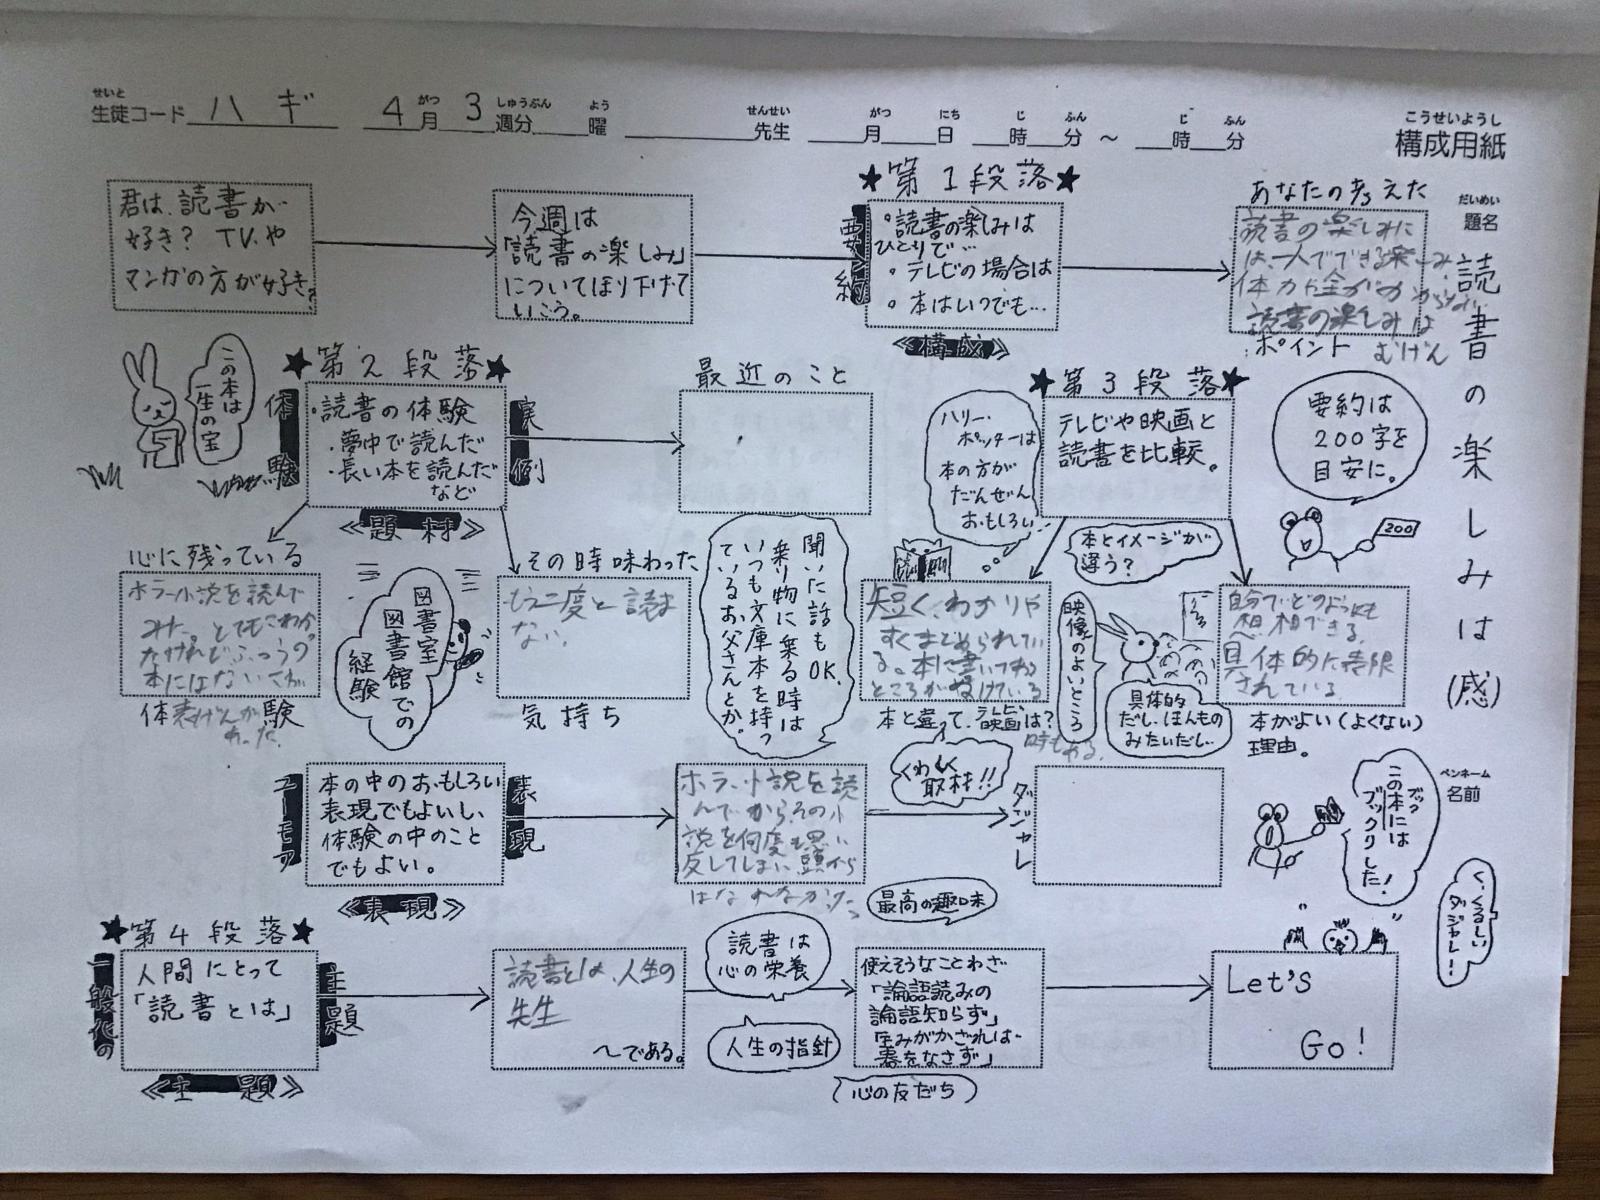 せいと がつ しゅうぶん よう せんせい がつ にち じ ふん じ ふん こうせいようし
生徒コード ハギ 4月 3週分 曜 先生 月 日 時 分 ～ 時 分 構成用紙
だいめい
題名
読書の楽しみは(感)
ペンネーム
名前
君は、読書が
好き? TVや
マンガの方が好き?
今週は
「読書の楽しみ」
についてほり下げて
いこう。
★第1段落★
要約
・読書の楽しみは
ひとりで…
・テレビの場合は
・本はいつでも…
≪構成≫
あなたの考えた
読書の楽しみに
は、一人でできる楽しみ
読書の楽しみは
むげん
ポイント
この本は
一生の宝
★第2段落★
体験
・読書の体験
・夢中で読んだ
・長い本を読んだ
など
実例
≪題材≫
最近のこと
ハリー・
ポッターは
本の方が
だんぜん
おもしろい
★第3段落★
テレビや映画と
読書を比較。
要約は
200字を
目安に。
200
心に残っている
ホラー小説を読んで
みた。とてもこわかっ
たけれどふつうの
本にはない
体験
図書室
図書館での
経験
その時味わった
もう二度と読ま
ない。
気持ち
聞いた話もOK。
乗り物に乗る時は
いつも文庫本を持っ
ているお父さんとか。
本とイメージが
違う?
短く、わかりや
すくまとめられてい
る。本に書いてある
ところがぬけている
時もある。
本と違って、映画は?
映像のよいところ
具体的
だし、ほんもの
みたいだし…
自分でどのようにも
想像できる。
具体的に表現
されている。
本がよい(よくない)
理由。
くわしく
取材!!
ユーモア
本の中のおもしろい
表現でもよいし、
体験の中のこと
でもよい。
表現
≪表現≫
ホラー小説を読
んでからその小
説を何度も思い
返してしまい頭から
はなれなかった
ダジャレ
ブック
この本には
ブックリした!
く、くるしい
ダジャレ…!
★第4段落★
一般化の
人間にとって
「読書とは」
主題
≪主題≫
読書とは、人生の
先生
～である。
読書は
心の栄養
人生の指針
最高の趣味
使えそうなことわざ
「論語読みの
論語知らず」
「玉みがかざれば
器をなさず」
心の友だち
Let's
Go!